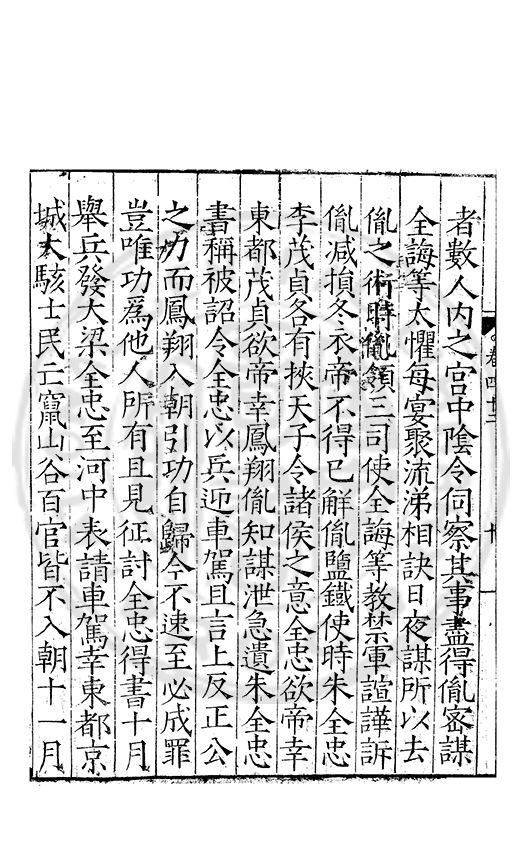 者數人内之宫中陰令伺察其事盡得胤密謀
全誨等大懼每宴聚流涕相訣日夜謀所以去
胤之術時胤領三司使全誨等教禁軍諠譁訴
胤減損冬衣帝不得已解胤鹽鐵使時朱全忠
李茂貞各有挾天子令諸侯之意全忠欲帝幸
東都茂貞欲帝幸鳳翔胤知謀泄急遺朱全忠
書稱被詔令全忠以兵迎車駕且言上反正公
之力而鳳翔入朝引功自歸今不速至必成罪
豈唯功爲他人所有且見征討全忠得書十月
舉兵發大梁全忠至河中表請車駕幸東都京
城大駭士民亡竄山谷百官皆不入朝十一月